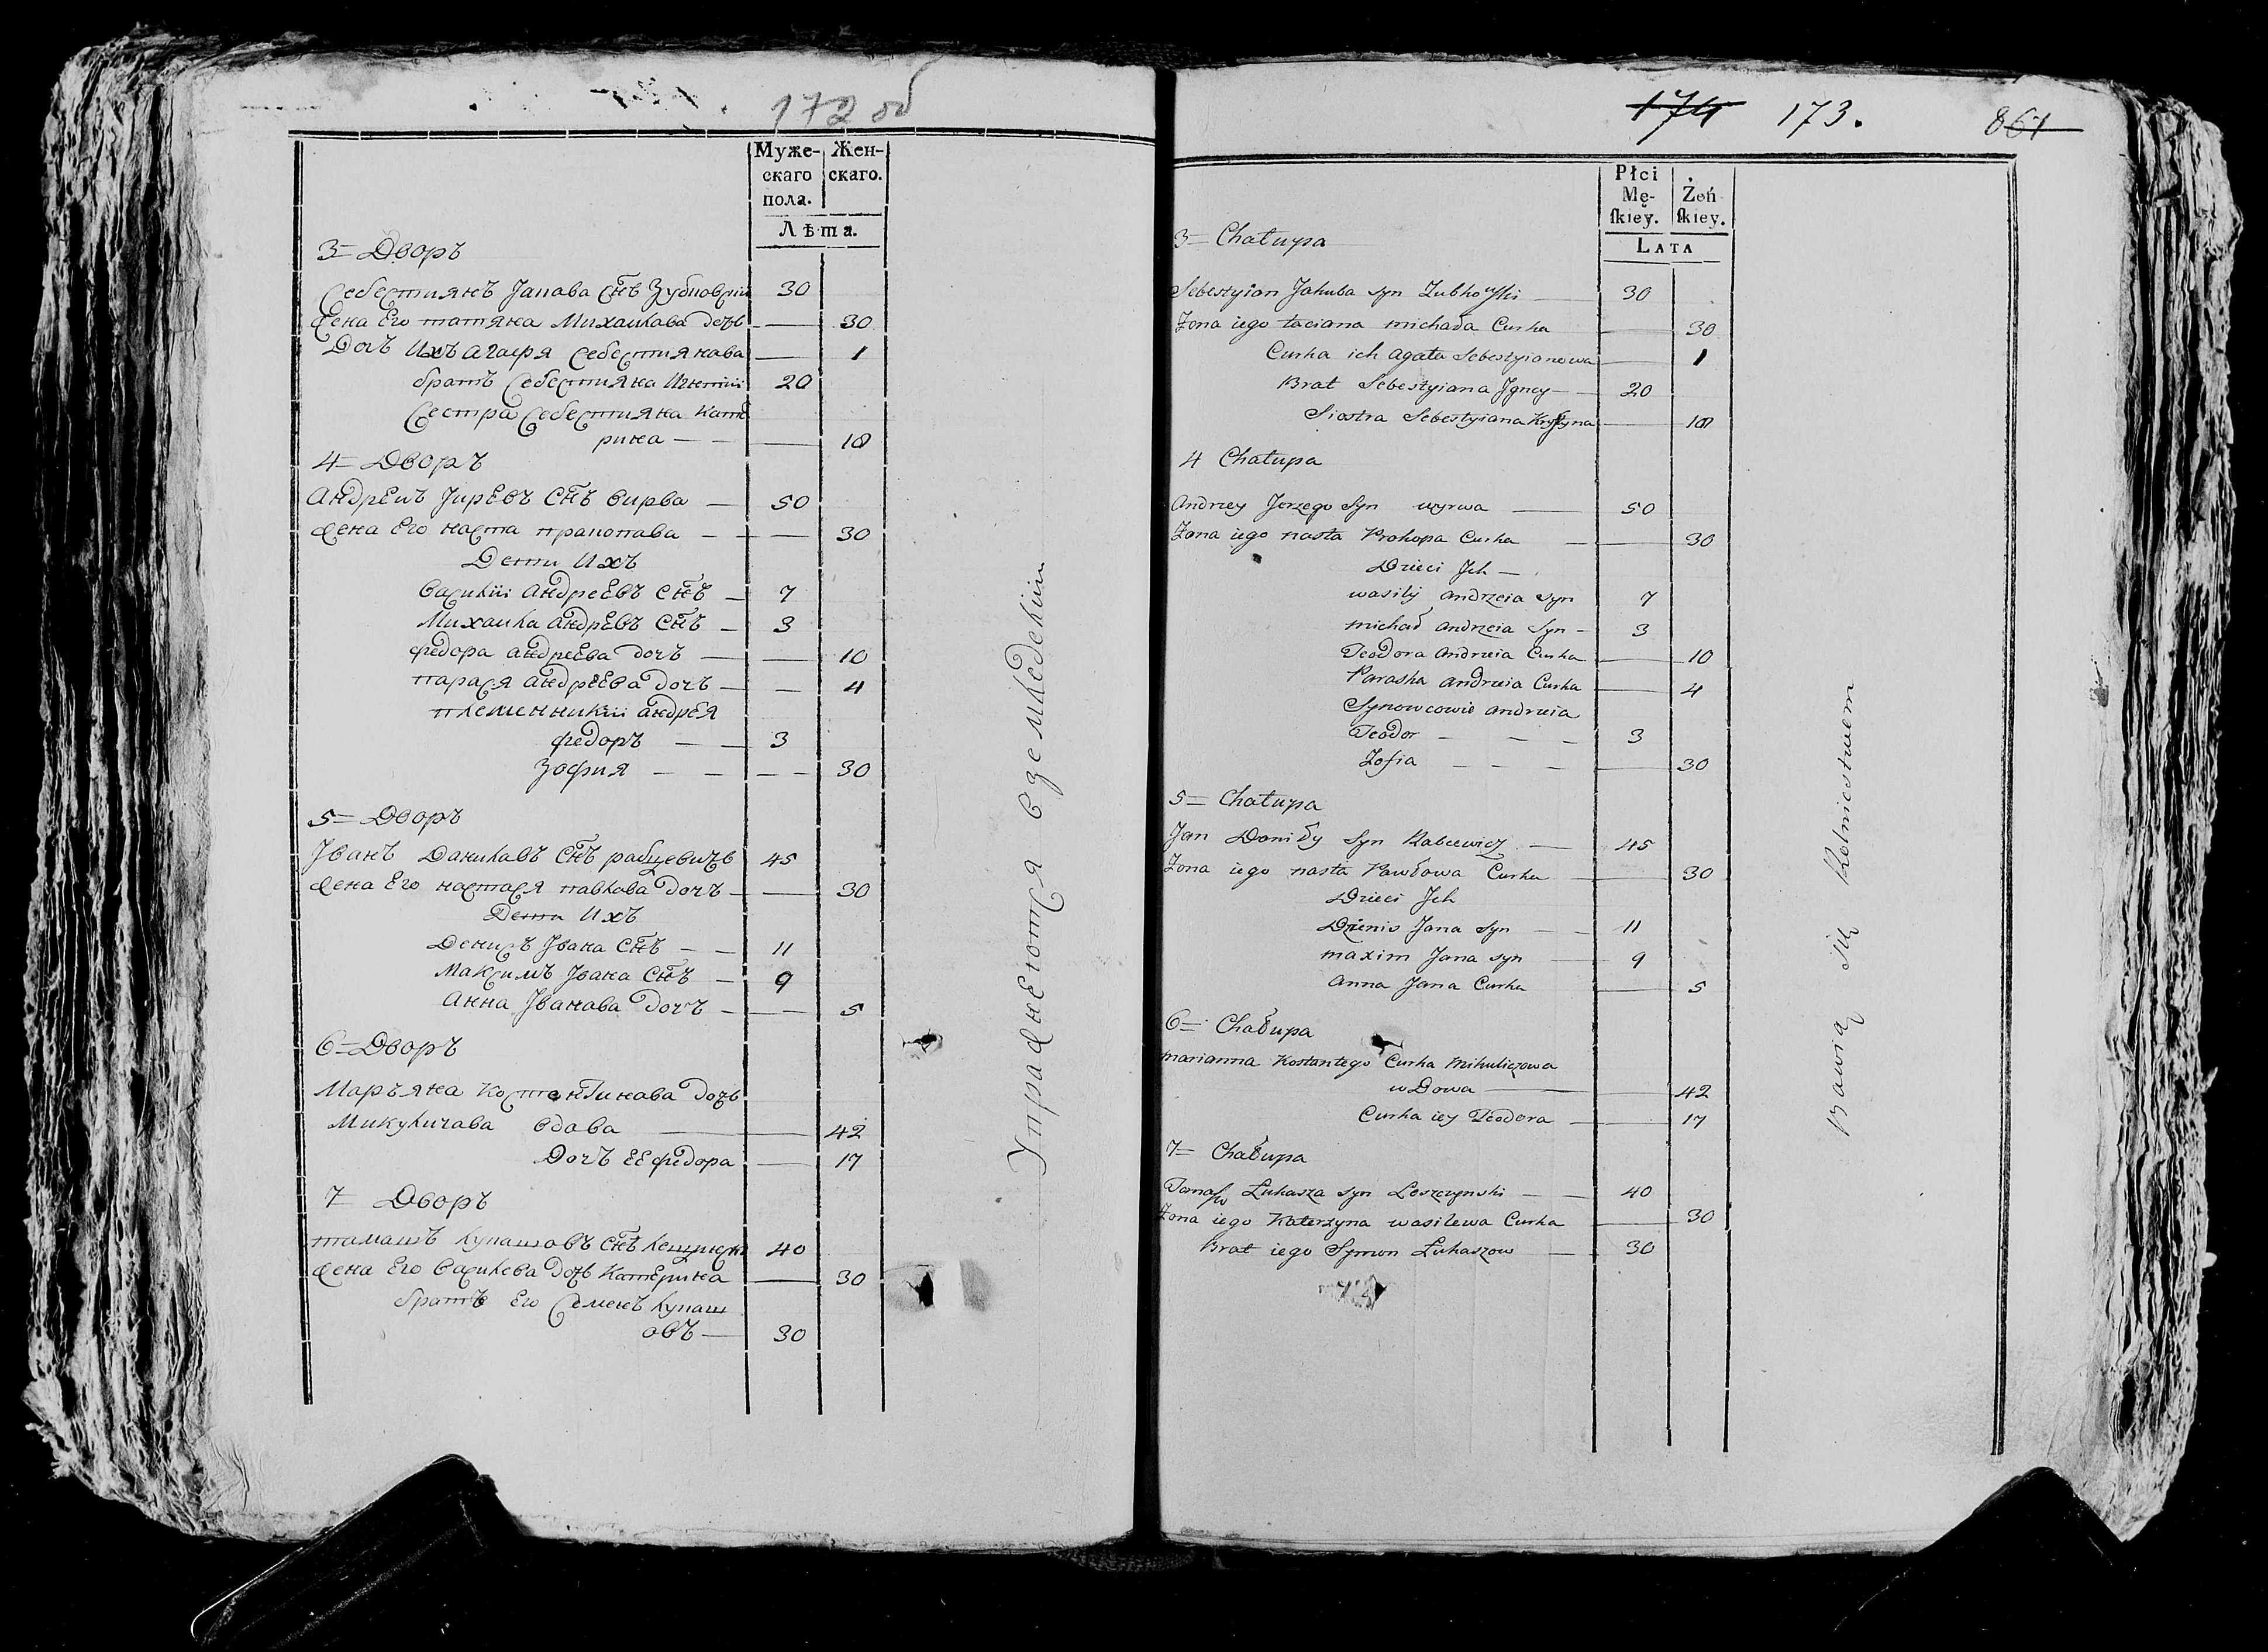 172 об
Муже-
скаго
пола.
Жен-
скаго.
Лѣта.
3= Дворъ
Себестиянъ Јапава снъ Зубковски 30
Жена Его татяна Михаилава дочь 30
Дочь Ихъ агафя Себестиянава 1
братъ Себестияна Игнатiи 20
Сестра Себестияна Кате
рина 10
4= Дворъ
Андреи Јиревъ снъ вирва 50
Жена Его наста пракопава 30
Дети Ихъ
Василiи андреевъ снъ 7
Михаила андревъ снъ 3
федора андреева дочъ 10
парася андреева дочъ 4
племенникiи андрея
федоръ 3
Зофия 30
5= Дворъ
Јванъ Данилавъ снъ рабцевичъ 45
Жена Его настася павлава дочъ 30
Дети Ихъ
Денисъ Јвана снъ 11
Максимъ Јвана снъ 9
Анна Јванава дочъ 5
6= Дворъ
Маръяна Костантинава дочь
Микуличава вдава 42
Дочъ ЕЕ федора 17
7= Дворъ
тамашъ лукашовъ снъ 40
Жена Его Василева дочь Катерина 30
братъ Его Семенъ лукаш
овъ 30
Упражнеются вземледелии
174 173. 861
Płci
Mę-
ſkiey.
Żeń
ſkiey.
LATA
3= Chałupa
Sebestyian Jakuba syn Zubkowski 30
Zona iego taciana michała Curka 30
Curka ich agata Sebestyianowa 1
Brat Sebestyiana Jgncy 20
Siostra Sebestyiana Krystyna 10
4 Chałupa
Andrzey Jerzego Syn wyrwa 50
Zona iego nasta Prokopa Curka 30
Dzieci Jch
wasily andrzeia syn 7
michał andrzeia Syn 3
Teodora andrzeia Curka 10
Paraska andrzeia Curka 4
Synowcowie andrzeia
Teodor 3
Zofia 30
5= Chałupa
Jan Daniły Syn Rabcewicz 45
Zona iego nasta Pawłowa Curka 30
Dzieci Jch
Dzienis Jana Syn 11
maxim Jana syn 9
anna Jana Curka 5
6= Chałupa
marianna Kostantego Curka Mikuliczowa
wDowa 42
Curka iey Teodora 17
7= Chałupa
Łukasza syn Leszczynski 40
Zona iego Katerzyna wasilewa Curka 30
Brat iego Symon Łukaszow 30
Bawią się Rolnicstwem